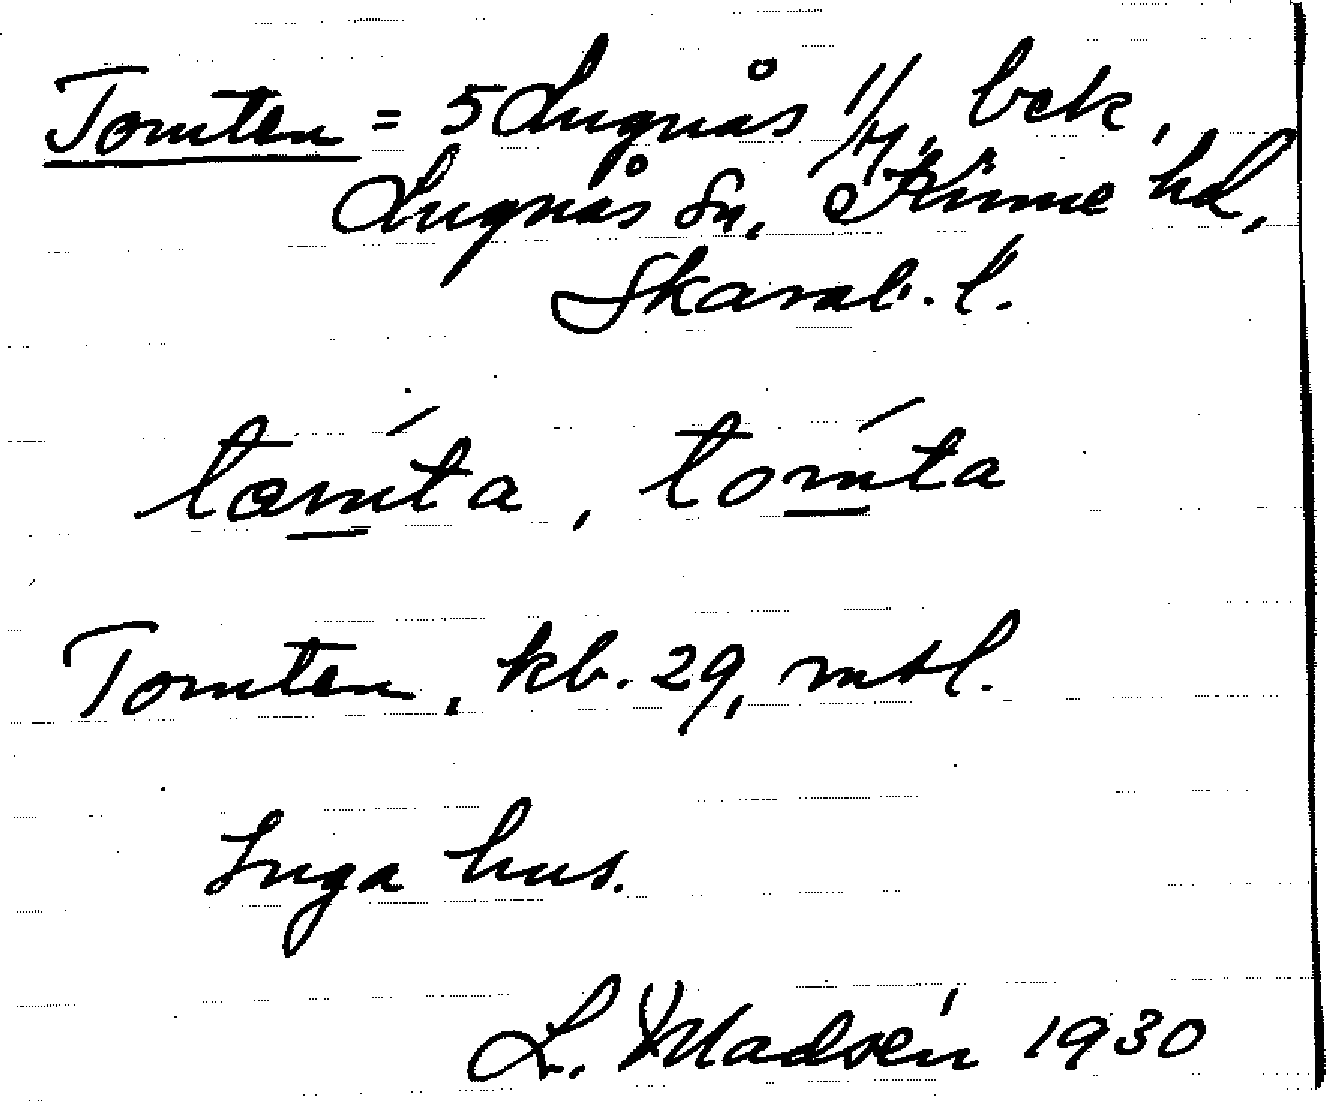 Tomten = 5 Lugnås 1/4, bek,
Lugnås sn, Kinne hd,
Skarab. l.
tæm̲´ta, tom̲´ta
Tomten, kb. 29, mtl.
Inga hus.
L. Madsén 1930